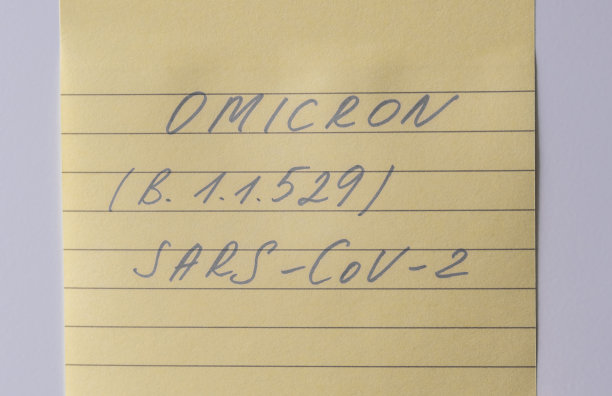 OMICRON
(B.1.1.529)
SARS-CoV-2